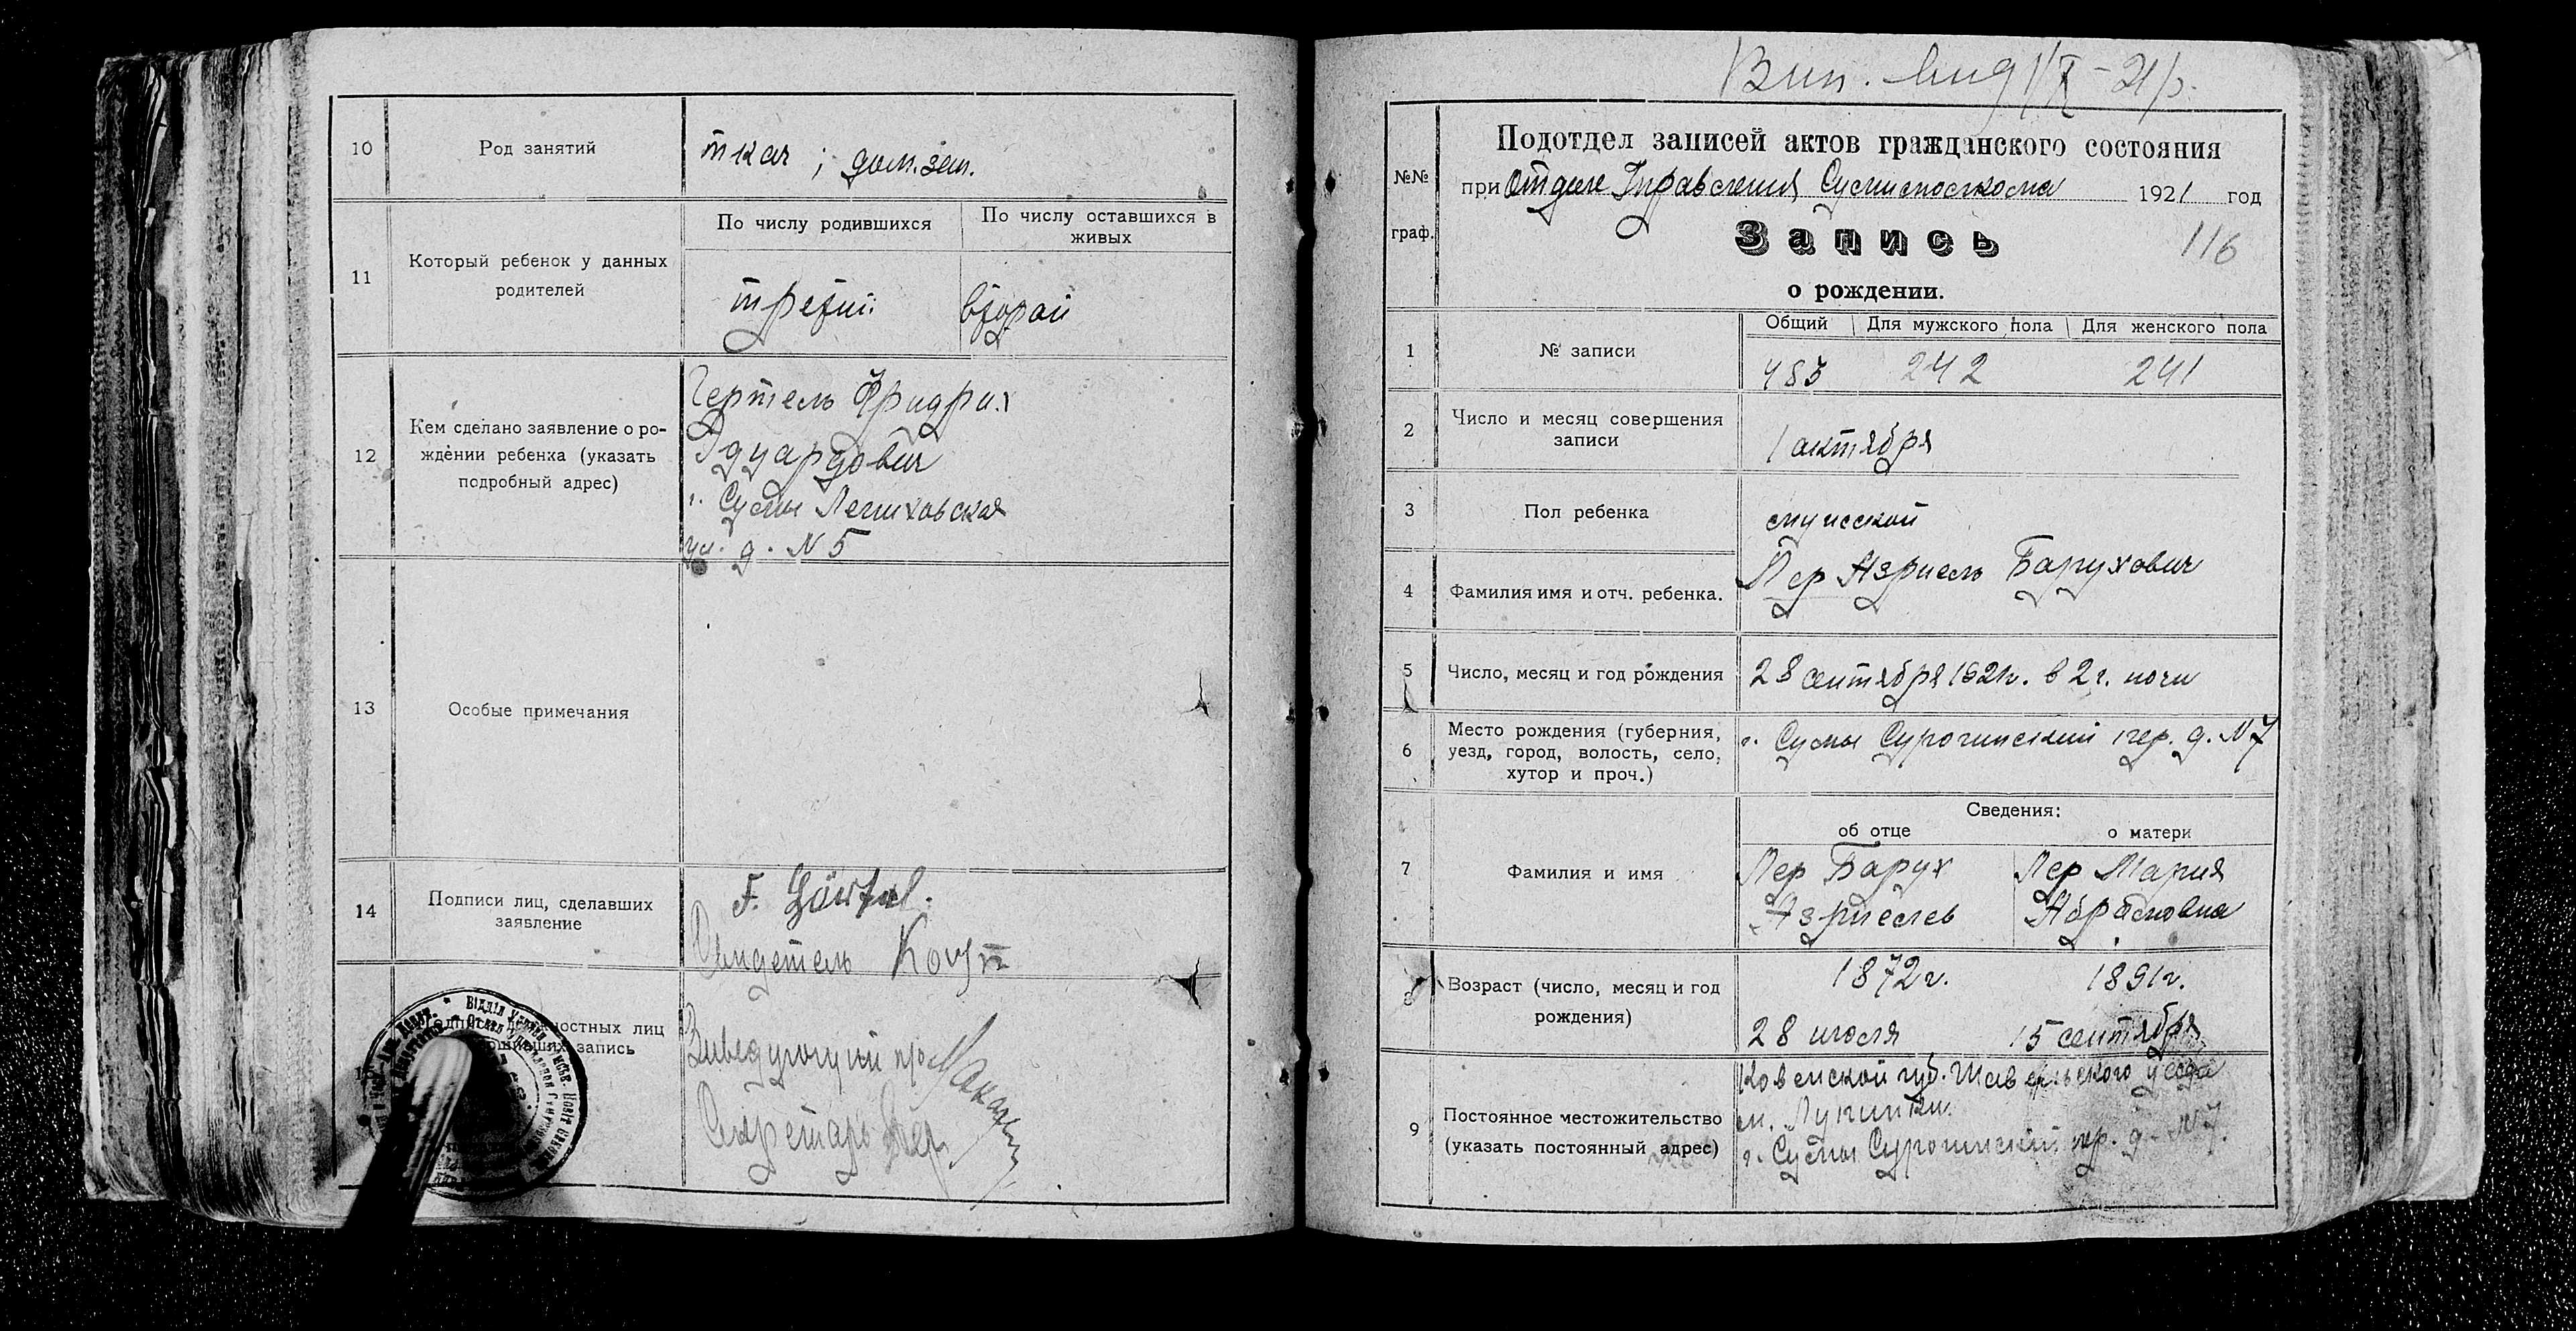 10 Род занятий ткач ; дом. зан.
11 Который ребенок у данных родителей
По числу родившихся
По числу оставшихся в живых
третий
второй
12 Кем сделано заявление о ро-
ждении ребенка (указать
подробный адрес)
Гертель Фридрих
Эдуардович
г. Сумы
ул. д. N 5
13 Особые примечания
14 Подписи лиц, сделавших
заявление
F. Görtel.
Свидетель
остных лиц
запись
Секретарь
Вип. вид 1/X-21 р.
№№
граф.
Подотдел записей актов гражданского состояния
при Отделе Управления 1921 год
Запись
116
о рождении.
1 № записи
Общий Для мужского пола Для женского пола
483 242 241
2 Число и месяц совершения
записи
1 октября
3 Пол ребенка
мужской
4 Фамилия имя и отч. ребенка.
Пер Азриель Барухович
5 Число, месяц и год рождения
28 сентября 1921г. в 2 г. ночи
6 Место рождения (губерния,
уезд, город, волость, село,
хутор и проч.)
г. Сумы пер. д. N 7
7 Фамилия и имя
Сведения:
об отце о матери
Пер Барух
Азриелев
Пер Мария
Абрамовна
8 Возраст (число, месяц и год
рождения)
1872г.
28 июля
1891г.
15 сентября
9 Постоянное местожительство
(указать постоянный адрес)
Ковенской губ. Шавельского уезда
г. Сумы пер. д. N 7.